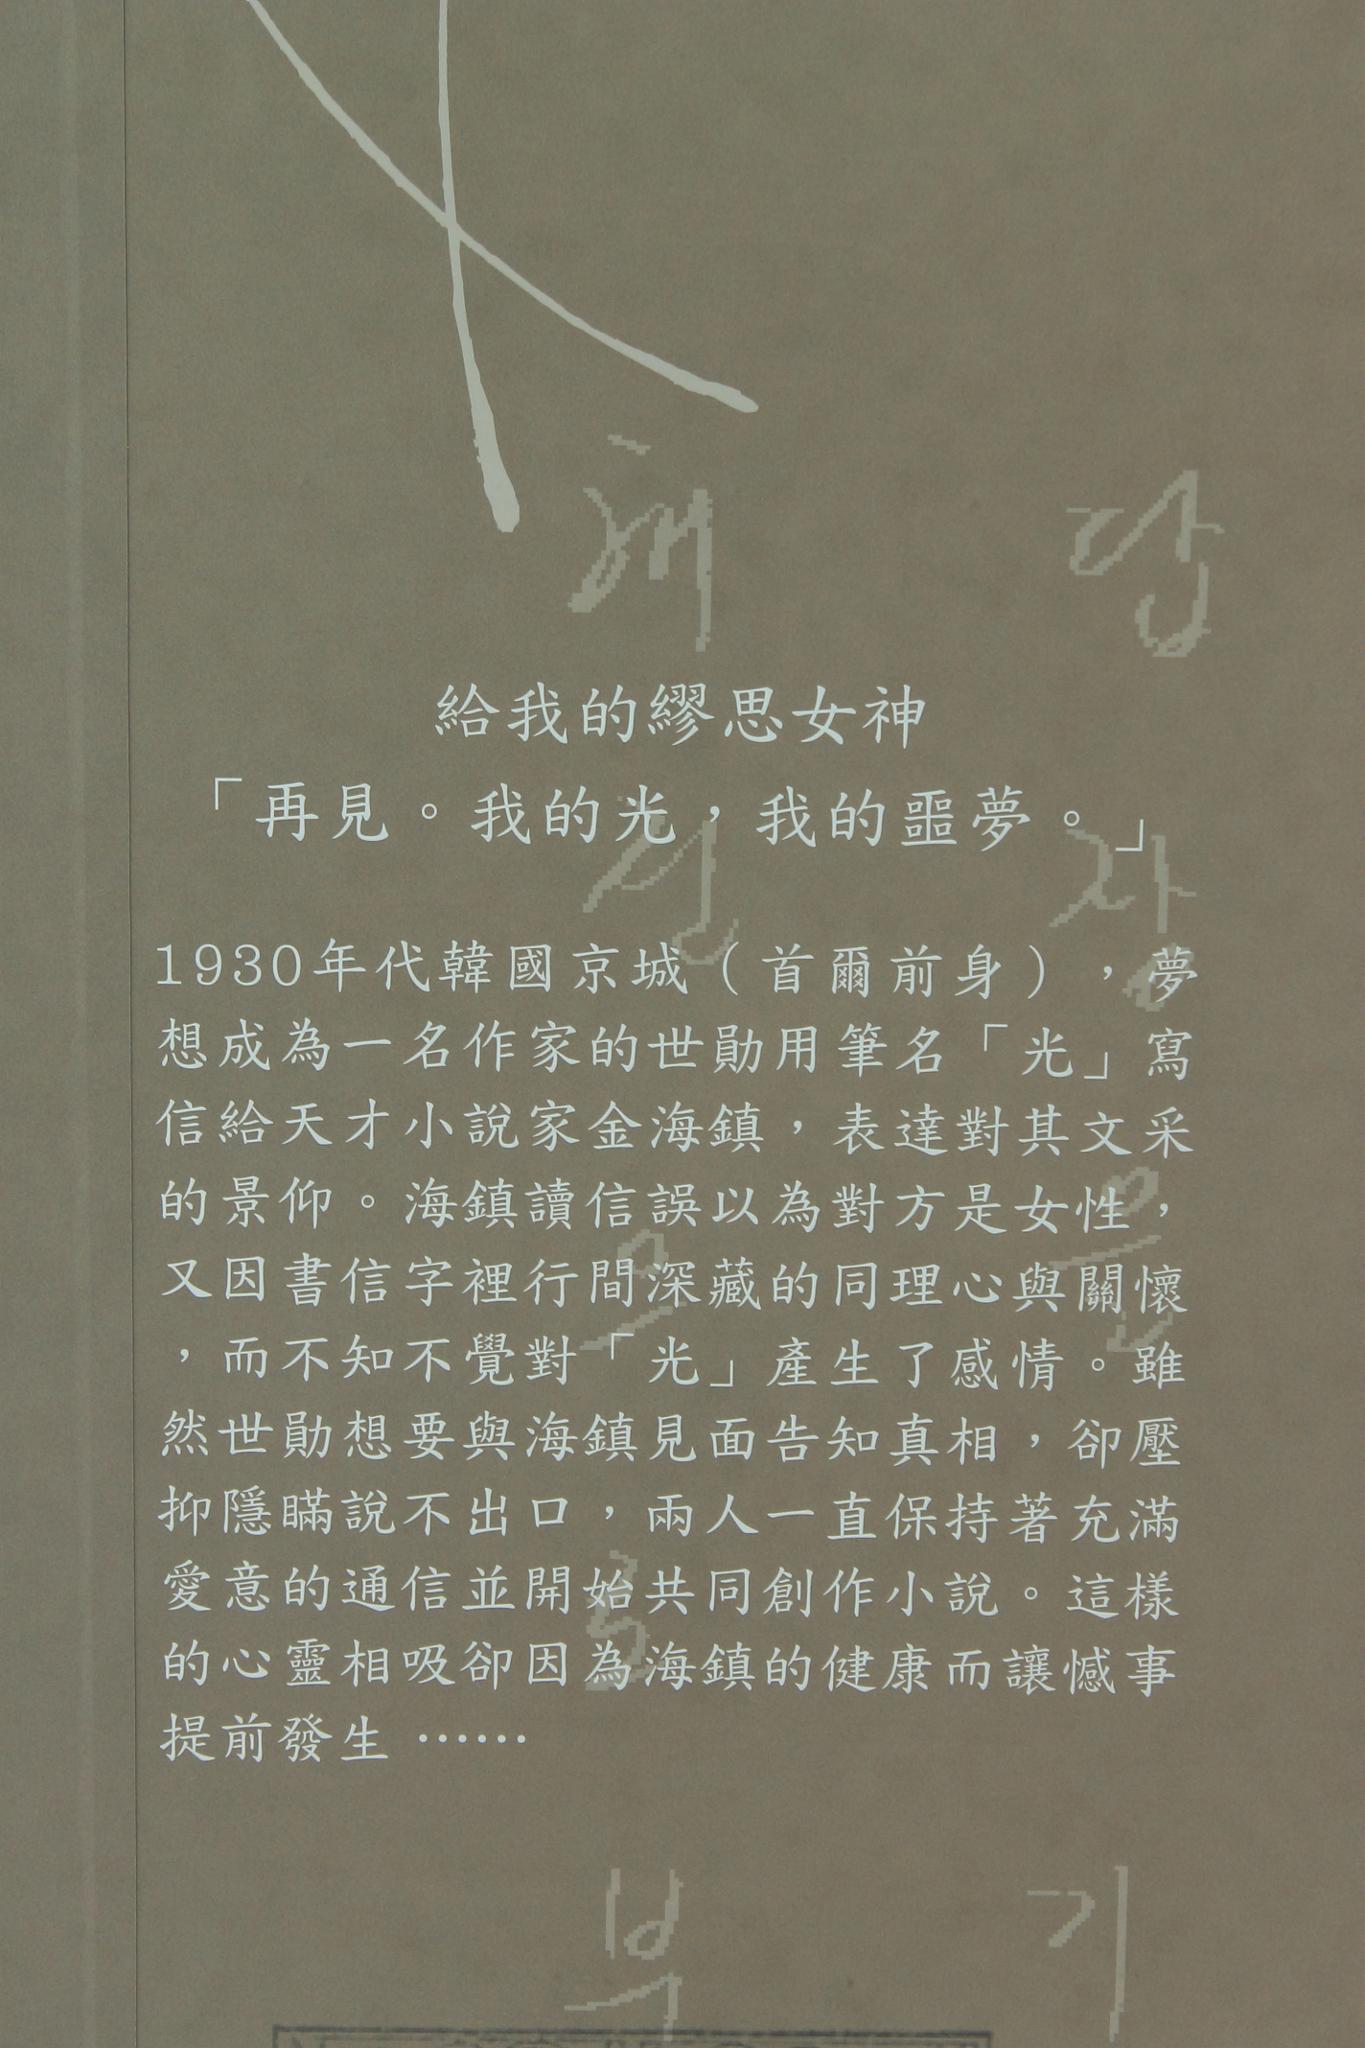 給我的繆思女神
「再見。我的光，我的噩夢。」
1930年代韓國京城（首爾前身），夢
想成為一名作家的世勛用筆名「光」寫
信給天才小說家金海鎮，表達對其文采
的景仰。海鎮讀信誤以為對方是女性，
又因書信字裡行間深藏的同理心與關懷
，而不知不覺對「光」產生了感情。雖
然世勛想要與海鎮見面告知真相，卻壓
抑隱瞞說不出口，兩人一直保持著充滿
愛意的通信並開始共同創作小說。這樣
的心靈相吸卻因為海鎮的健康而讓憾事
提前發生 ⋯⋯